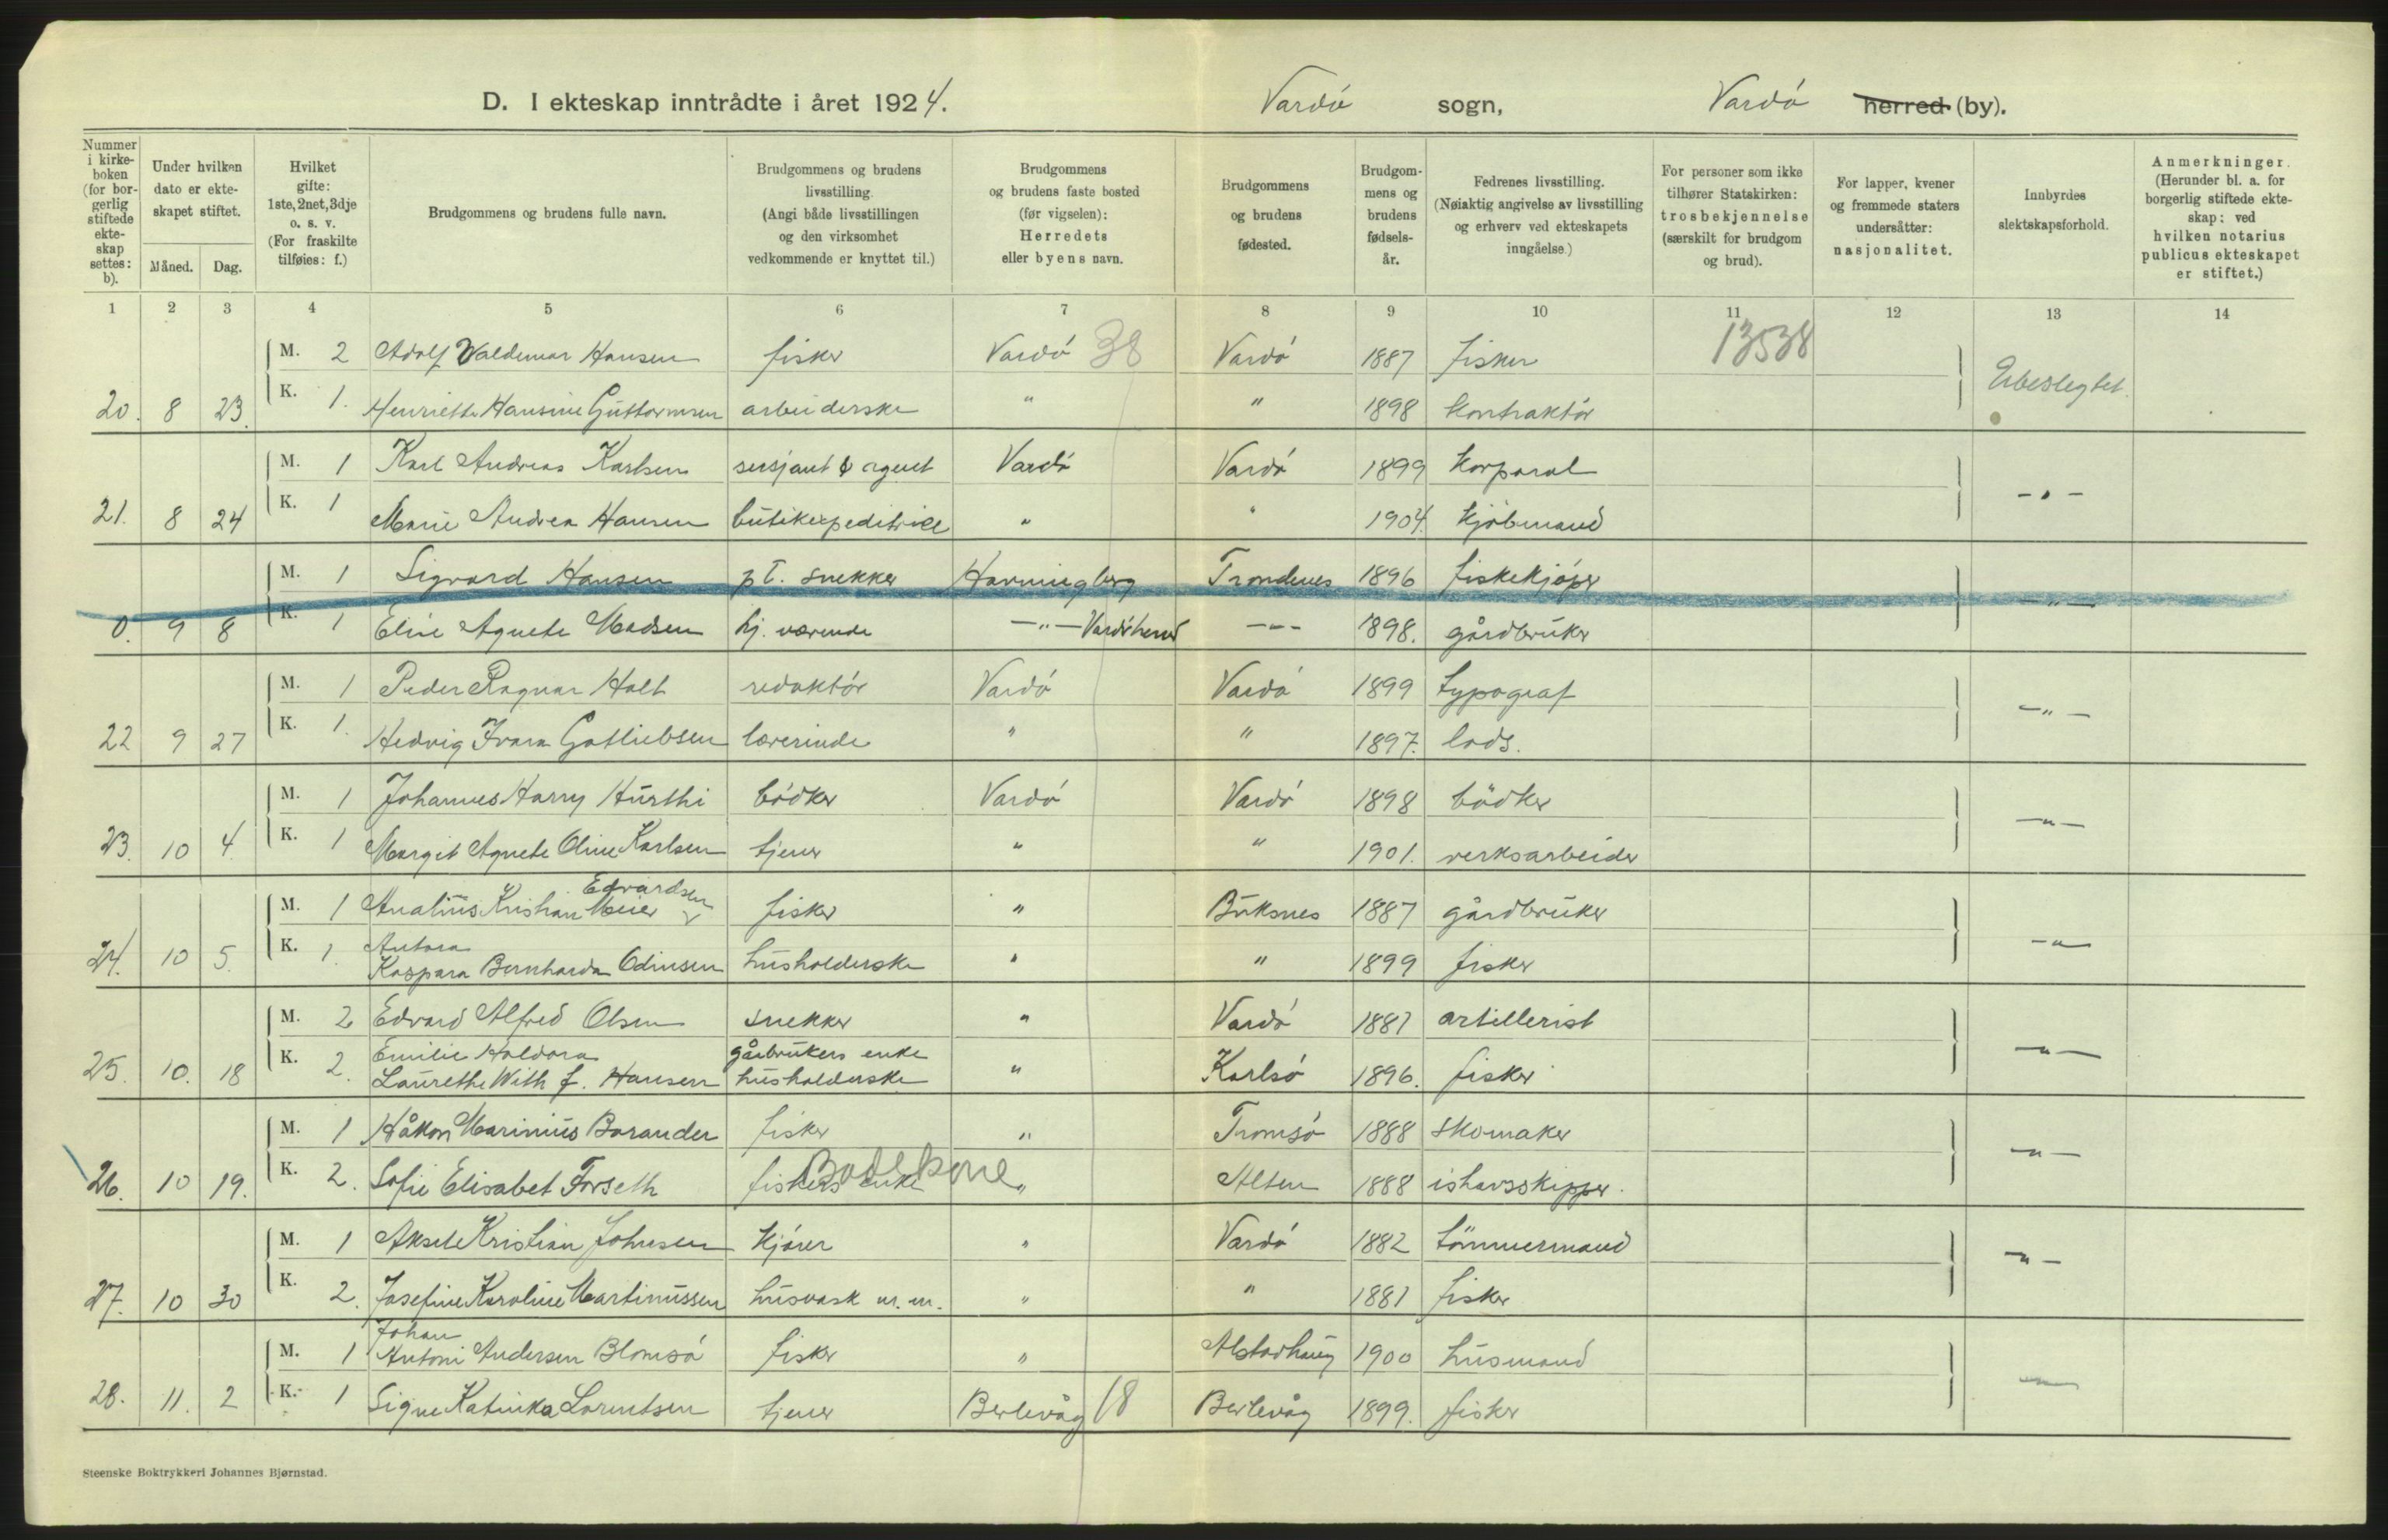 D. I ekteskap inntrådte i året 1924. Vardø sogn, Vardø herred (by).
Nummer i kirkeboken (for borgerlig stiftede ekteskap settes: b).
Under hvilken dato er ekteskapet stiftet.
Måned. Dag.
Hvilket gifte: 1ste, 2net, 3dje o. s. v. (For fraskilte tilføies: f.)
Brudgommens og brudens fulle navn.
Brudgommens og brudens livsstilling. (Angi både livsstillingen og den virksomhet vedkommende er knyttet til.)
Brudgommens og brudens faste bosted (før vigselen): Herredets eller byens navn.
Brudgommens og brudens fødested.
Brudgommens og brudens fødselsår.
Fedrenes livsstilling. (Nøiaktig angivelse av livsstilling og erhverv ved ekteskapets inngåelse.)
For personer som ikke tilhører Statskirken: trosbekjennelse (særskilt for brudgom og brud).
For lapper, kvener og fremmede staters undersåtter: nasjonalitet.
Innbyrdes slektskapsforhold.
Anmerkninger. (Herunder bl. a. for borgerlig stiftede ekteskap: ved hvilken notarius publicus ekteskapet er stiftet.)
1 2 3 4 5 6 7 8 9 10 11 12 13 14
M. 2 Adolf Valdemar Hansen fisker Vardø 38 Vardø 1887 fisker 13538
20. 8 23. K. 1. Henriette Hansine Guttormsen arbeiderske " " 1898 kontraktør Ubeslegtet.
M. 1 Karl Andreas Karlsen sersjant & agent Vardø Vardø 1899 korporal
21. 8 24 K. 1 Marie Andrea Hansen butikexpeditrice " " 1904. kjøbmand - " -
M. 1 Sigvard Hansen p.t. snekker Havningberg Trondenes 1896 fiskekjøper
0. 9 8 K. 1 Eline Agnete Madsen hj. værende - " - Vardø herred - " - 1898. gårdbruker - " -
M. 1 Peder Ragnar Holt redaktør Vardø Vardø 1899 typograf
22 9 27 K. 1. Hedvig Ivara Gotliebsen lærerinde " " 1897. lods. - " -
M. 1 Johannes Harry Hurthi bødker Vardø Vardø 1898 bødker
23. 10 4. K. 1 Margit Agnete Oline Karlsen tjener " " 1901. verksarbeider - " -
Edvardsen
M. 1 Analius Kristian Meier fisker " Buksnes 1887 gårdbruker
24. 10 5. K. 1. Antora
Kaspara Bernharda Odinsen husholderske " " 1899 fisker - " -
M. 2 Edvard Alfred Olsen snekker " Vardø 1881 artillerist
K. 2. Emilie Haldora gårbrukers enke
25. 10. 18 Laurethe With f. Hansen husholderske " Karlsø 1896. fisker - " -
M. 1 Håkon Marinius Borander fisker " Tromsø 1888 skomaker
26. 10 19. K. 2. Sofie Elisabet Forseth fiskers enke " Alten 1888 ishavsskipper. - " -
M. 1 Aksel Kristian Johnsen kjører " Vardø 1882 tømmermand
27. 10 30 K. 2. Josefine Karoline Martinussen husvask m. m. " " 1881 fisker - " -
Johan
M. 1 Antoni Andersen Blomsø fisker " Alstadhaug 1900 husmand
28. 11. 2 K. 1 Signe Katinka Lorentsen tjener Berlevåg 18 Berlevåg 1899. fisker - " -
Steenske Boktrykkeri Johannes Bjørnstad.